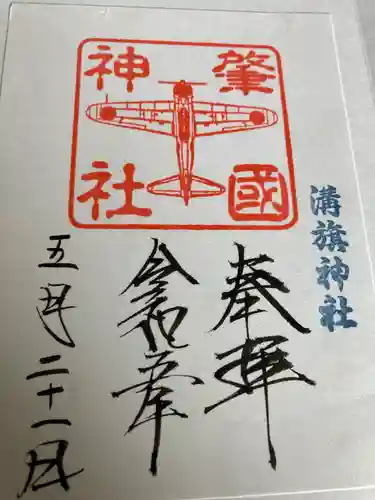 肇國
神社
溝旗神社
奉拝
令和六年
五月二十一日